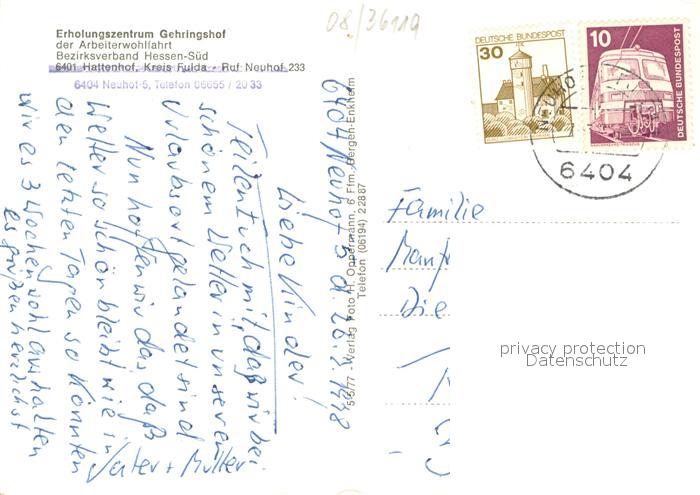 08/36119
Erholungszentrum Gehringshof
der Arbeiterwohlfahrt
Bezirksverband Hessen-Süd
6401 Hattenhof, Kreis Fulda - Ruf: Neuhof 233
6404 Neuhof-5, Telefon 06655 / 20 33
6404 Neuhof 5 d. 26.2.1978
Liebe Kinder!
Teilen Euch mit, daß wir bei
schönem Wetter in unseren
Urlaubsort gelandet sind
Nun hoffen wir das, daß
Wetter so schön bleibt wie in
den letzten Tagen so könnten
wir es 3 Wochen wohl aushalten
es grüßen herzlichst
Vater + Mutter
5/5/77 - Verlag Foto H. Oppermann, 6 Ffm. Bergen-Enkheim
Telefon (06194) 2 28 87
DEUTSCHE BUNDESPOST
30
10
DEUTSCHE BUNDESPOST
6404
Familie
Manf
Die
privacy protection
Datenschutz